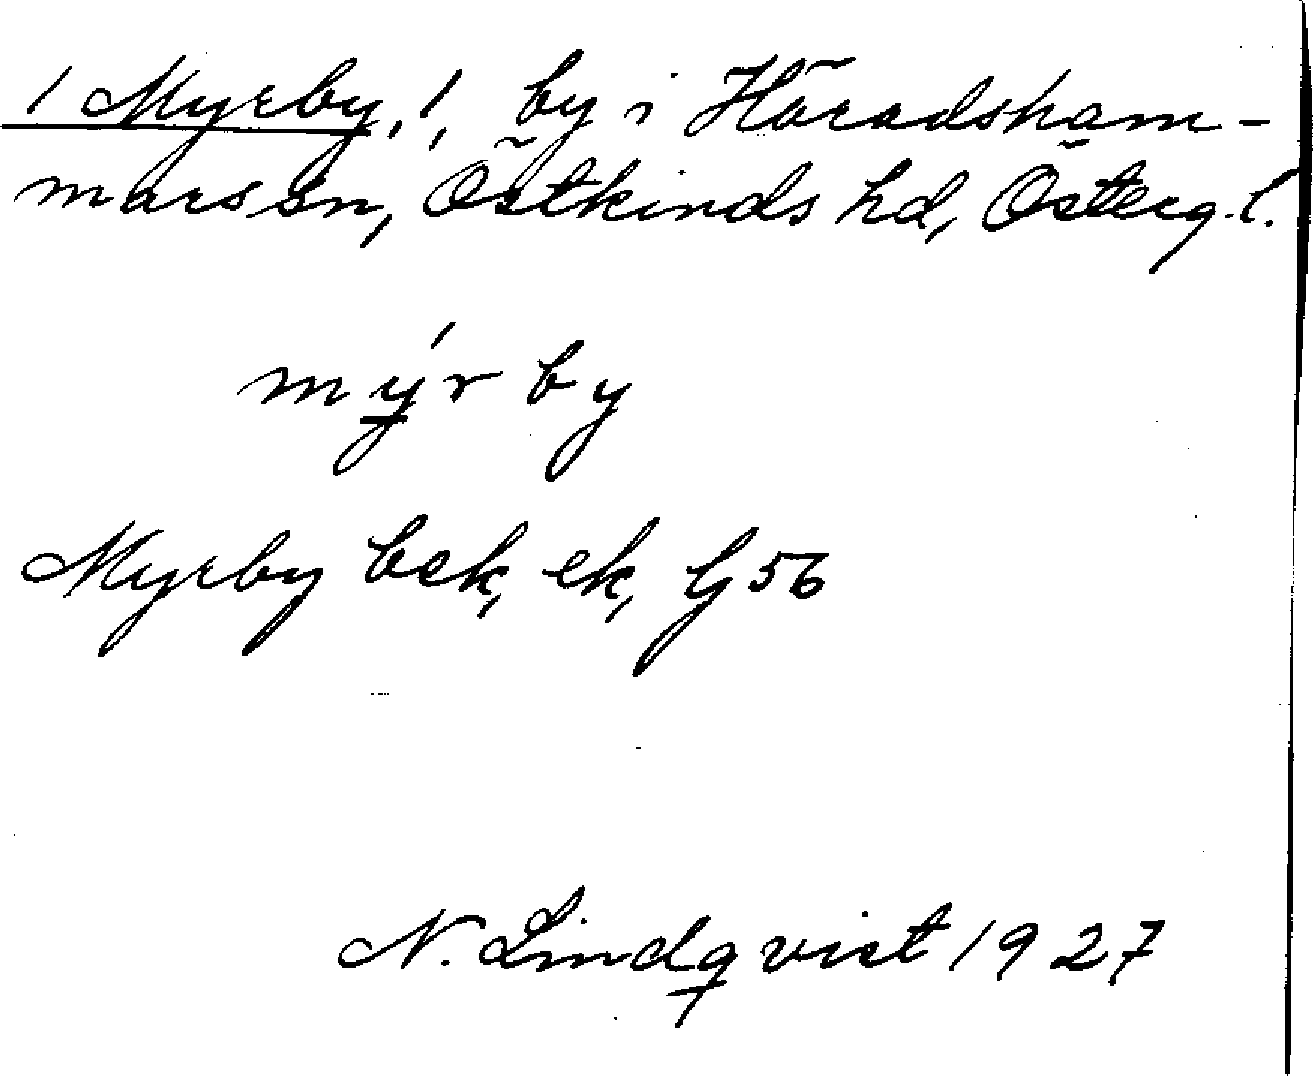 1 Myrby, 1, by i Häradsham-
mars sn, Östkinds hd, Österg. l.
mýr by
Myrby bek, ek, Gj 56
N. Lindqvist 1927